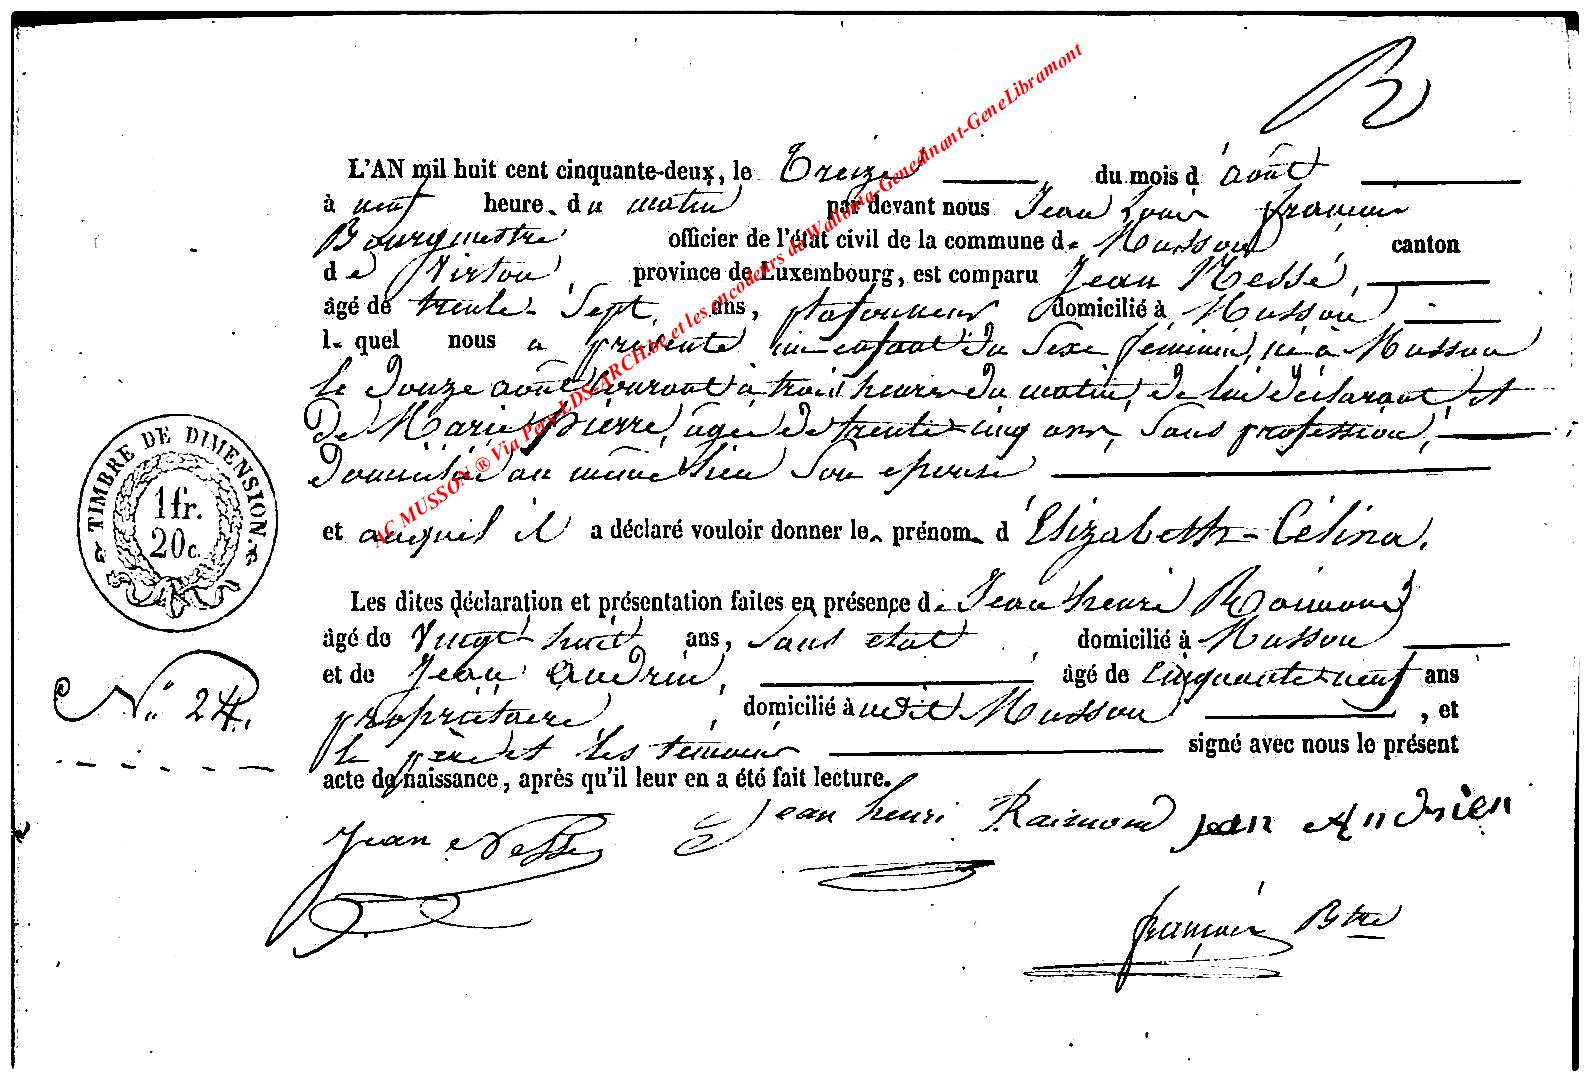 L'AN mil huit cent cinquante-deux, le Treize du mois d'août
à neuf heure. du matin par devant nous Jean Louis françois
Bourgmestre officier de l'état civil de la commune de Musson, canton
de Virton, province de Luxembourg, est comparu Jean Nessé,
âgé de trente-Sept, ans, plafonneur domicilié à Musson
lequel nous a présenté un enfant du Sexe féminin, né à Musson
le douze août courant à trois heures du matin, de lui déclarant et
de Marie Pierre, agée de trente-cinq ans, Sans profession,
domiciliée au même lieu Son épouse
et auquel il a déclaré vouloir donner le. prénom. d'Elizabeth-Célina.
Les dites déclaration et présentation faites en présence de Jean henri Raimond
âgé de Vingt-huit ans, Sans etat, domicilié à Musson
et de Jean Andrin, âgé de Cinquante-neuf ans
propriétaire, domicilié audit Musson, et
le père et les témoins signé avec nous le présent
acte de naissance, après qu'il leur en a été fait lecture.
Jean Nessé Jean henri Raimond jean Andrien
françois Btre
TIMBRE DE DIMENSION.
1 fr.
20 c.
N° 24.
AC MUSSON ® Via Per LDS-ARCH.be et les encodeurs de Wallonia-Genedinant-GeneLibramont